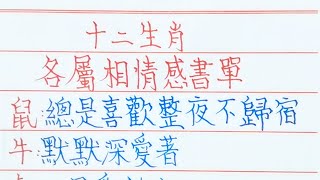 十二生肖
各屬相情感書單
鼠:總是喜歡整夜不歸宿
牛:默默深愛著